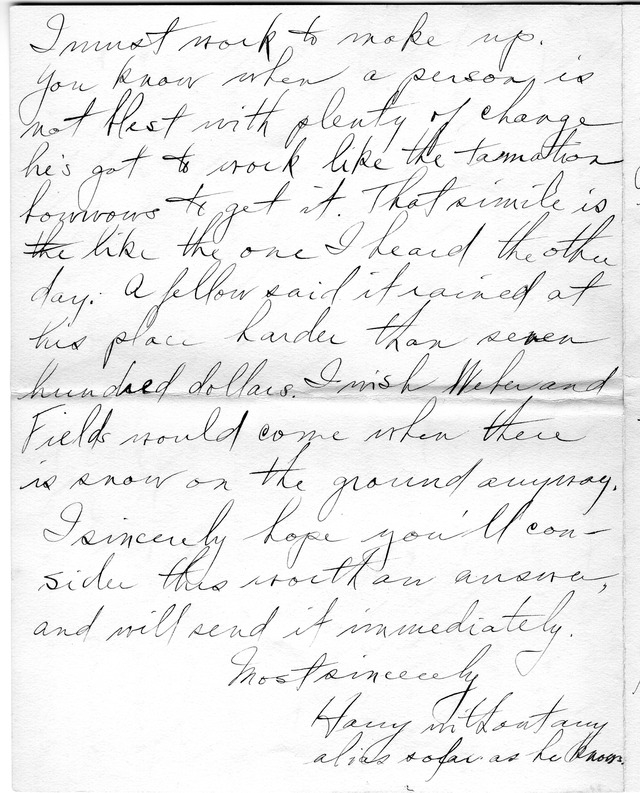 I must work to make up.
You know when a person is
not blest with plenty of change
he's got to work like the tarnation
bowwows to get it. That simile is
the like the one I heard the other
day. A fellow said it rained at
his place harder than seven
hundred dollars. I wish Weber and
Fields would come when there
is snow on the ground anyway.
I sincerely hope you'll con-
sider this worth an answer,
and will send it immediately.
Most sincerely
Harry without any
alias so far as he knows.